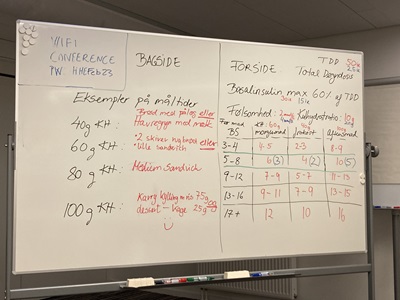 WIFI
CONFERENCE
PW: HHFeb23
BAGSIDE
Eksempler på måltider
40g KH:
Brød med pålæg eller
Havregryn med mælk
60g KH:
eller
lille sandwich
80 g KH:
Medium Sandwich
100g KH:
75g
dessert - kage 25g
FORSIDE
TDD
Total Døgndosis
Basalinsulin, max 60% af TDD
Følsomhed:
Kulhydratratio: 10g
Før mad
BS
morgenmad
frokost
aftensmad
3-4
4-5
2-3
8-9
5-8
6 (3)
4 (2)
10 (5)
9-12
7-9
5-7
11-13
13-16
9-11
7-9
13-15
17+
12
10
16